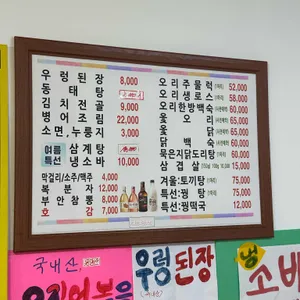 우렁된장 8,000
동태탕
김치전골 9,000
병어조림 22,000
소면,누룽지 3,000
여름 특선 삼계탕
냉소바 10,000
막걸리/소주/맥주 4,000
복분자 12,000
부안참뽕 8,000
호감 7,000
오리주물럭 52,000
오리생로스 58,000
오리한방백숙 60,000
옻오리 65,000
옻닭 60,000
닭백숙 60,000
묵은지닭도리탕 60,000
삼겹살 15,000
겨울:토끼탕 75,000
특선:꿩탕 75,000
특선:꿩떡국 12,000
국내산,
우렁된장
냉
소바